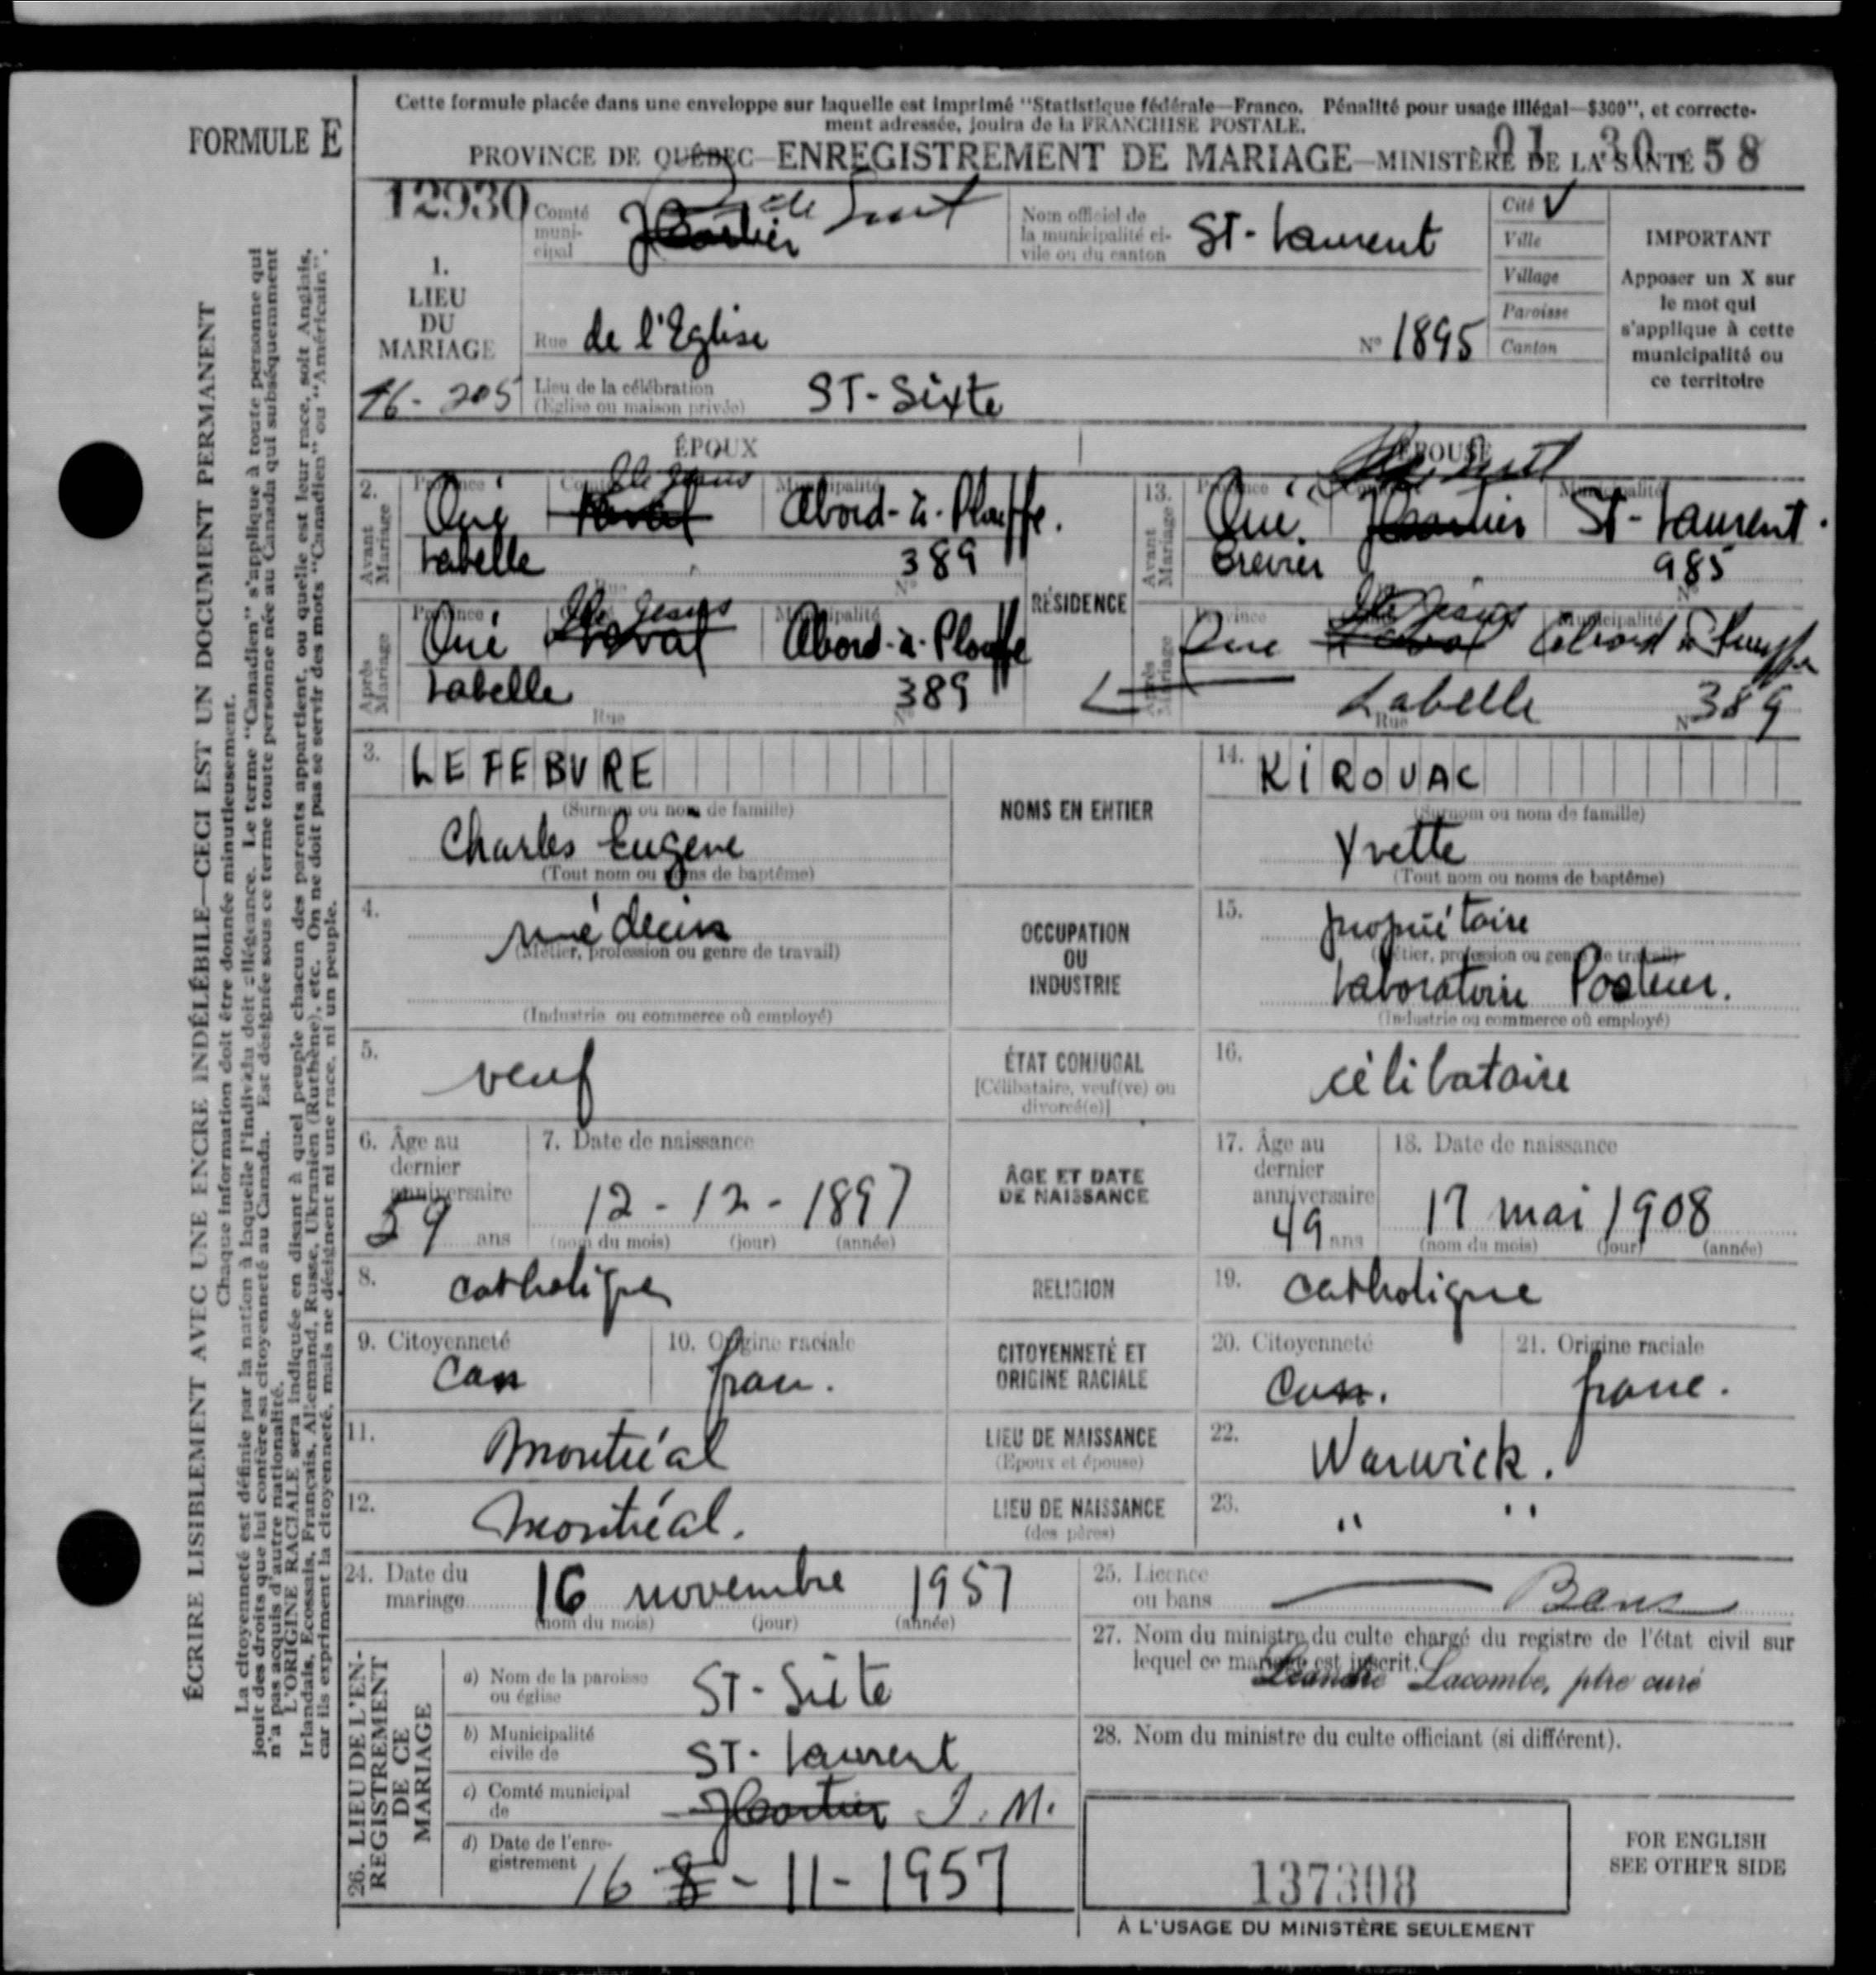 Cette formule placée dans une enveloppe sur laquelle est imprimé "Statistique fédérale—Franco. Pénalité pour usage illégal—$300", et correcte-
ment adressée, jouira de la FRANCHISE POSTALE.
FORMULE E
PROVINCE DE QUÉBEC—ENREGISTREMENT DE MARIAGE—MINISTÈRE DE LA SANTÉ
01 30 58
12930
1.
LIEU
DU
MARIAGE
16-205
Comté
muni-
cipal
JCartier
Nom officiel de
la municipalité ci-
vile ou du canton
ST-Laurent
Cité ✓
Ville
Village
Paroisse
Canton
IMPORTANT
Apposer un X sur
le mot qui
s'applique à cette
municipalité ou
ce territoire
Rue de l'Eglise
N° 1895
Lieu de la célébration
(Eglise ou maison privée)
ST-Sixte
ÉPOUX
ÉPOUSE
2.
Avant
Mariage
Province
Comté
Municipalité
Qué
Ile Jésus
Laval
Abord-à-Plouffe.
Labelle
389
Rue
N°
Après
Mariage
Province
Municipalité
Qué
Ile Jesus
Laval
Abord-à-Plouffe
Labelle
389
Rue
N°
RÉSIDENCE
13.
Avant
Mariage
Province
Municipalité
Qué.
JCartier
St-Laurent.
985
Après
Mariage
Province
Municipalité
Que
Ile Jésus
Laval
Abord à Plouffe
Labelle
389
Rue
N°
3.
LEFEBVRE
(Surnom ou nom de famille)
Charles Eugène
(Tout nom ou noms de baptême)
NOMS EN ENTIER
14.
KIROUAC
(Surnom ou nom de famille)
Yvette
(Tout nom ou noms de baptême)
4.
médecin
(Métier, profession ou genre de travail)
(Industrie ou commerce où employé)
OCCUPATION
OU
INDUSTRIE
15.
propriétaire
(Métier, profession ou genre de travail)
Laboratoire Pasteur.
(Industrie ou commerce où employé)
5.
veuf
ÉTAT CONJUGAL
[Célibataire, veuf(ve) ou
divorcé(e)]
16.
célibataire
6. Âge au
dernier
anniversaire
59 ans
7. Date de naissance
12 - 12 - 1897
(nom du mois) (jour) (année)
ÂGE ET DATE
DE NAISSANCE
17. Âge au
dernier
anniversaire
49 ans
18. Date de naissance
17 mai 1908
(nom du mois) (jour) (année)
8.
catholique
RELIGION
19.
catholique
9. Citoyenneté
Can
10. Origine raciale
fran.
CITOYENNETÉ ET
ORIGINE RACIALE
20. Citoyenneté
Can.
21. Origine raciale
franc.
11.
Montréal
LIEU DE NAISSANCE
(Epoux et épouse)
22.
Warwick.
12.
Montréal.
LIEU DE NAISSANCE
(des pères)
23.
" "
24. Date du
mariage
16 novembre 1957
(nom du mois) (jour) (année)
25. Licence
ou bans
Bans
26. LIEU DE L'EN-
REGISTREMENT
DE CE
MARIAGE
a) Nom de la paroisse
ou église
ST-Sixte
b) Municipalité
civile de
ST-Laurent
c) Comté municipal
de
JCartier I.M.
d) Date de l'enre-
gistrement
16 8-11-1957
27. Nom du ministre du culte chargé du registre de l'état civil sur
lequel ce mariage est inscrit.
Léandre Lacombe, ptre curé
28. Nom du ministre du culte officiant (si différent).
137308
À L'USAGE DU MINISTÈRE SEULEMENT
FOR ENGLISH
SEE OTHER SIDE
ÉCRIRE LISIBLEMENT AVEC UNE ENCRE INDÉLÉBILE—CECI EST UN DOCUMENT PERMANENT
Chaque information doit être donnée minutieusement.
La citoyenneté est définie par la nation à laquelle l'individu doit allégeance. Le terme "Canadien" s'applique à toute personne qui
jouit des droits que lui confère sa citoyenneté au Canada. Est désignée sous ce terme toute personne née au Canada qui subséquemment
n'a pas acquis d'autre nationalité.
L'ORIGINE RACIALE sera indiquée en disant à quel peuple chacun des parents appartient, ou quelle est leur race, soit Anglais,
Irlandais, Ecossais, Français, Allemand, Russe, Ukranien (Ruthène), etc. On ne doit pas se servir des mots "Canadien" ou "Américain",
car ils expriment la citoyenneté, mais ne désignent ni une race, ni un peuple.